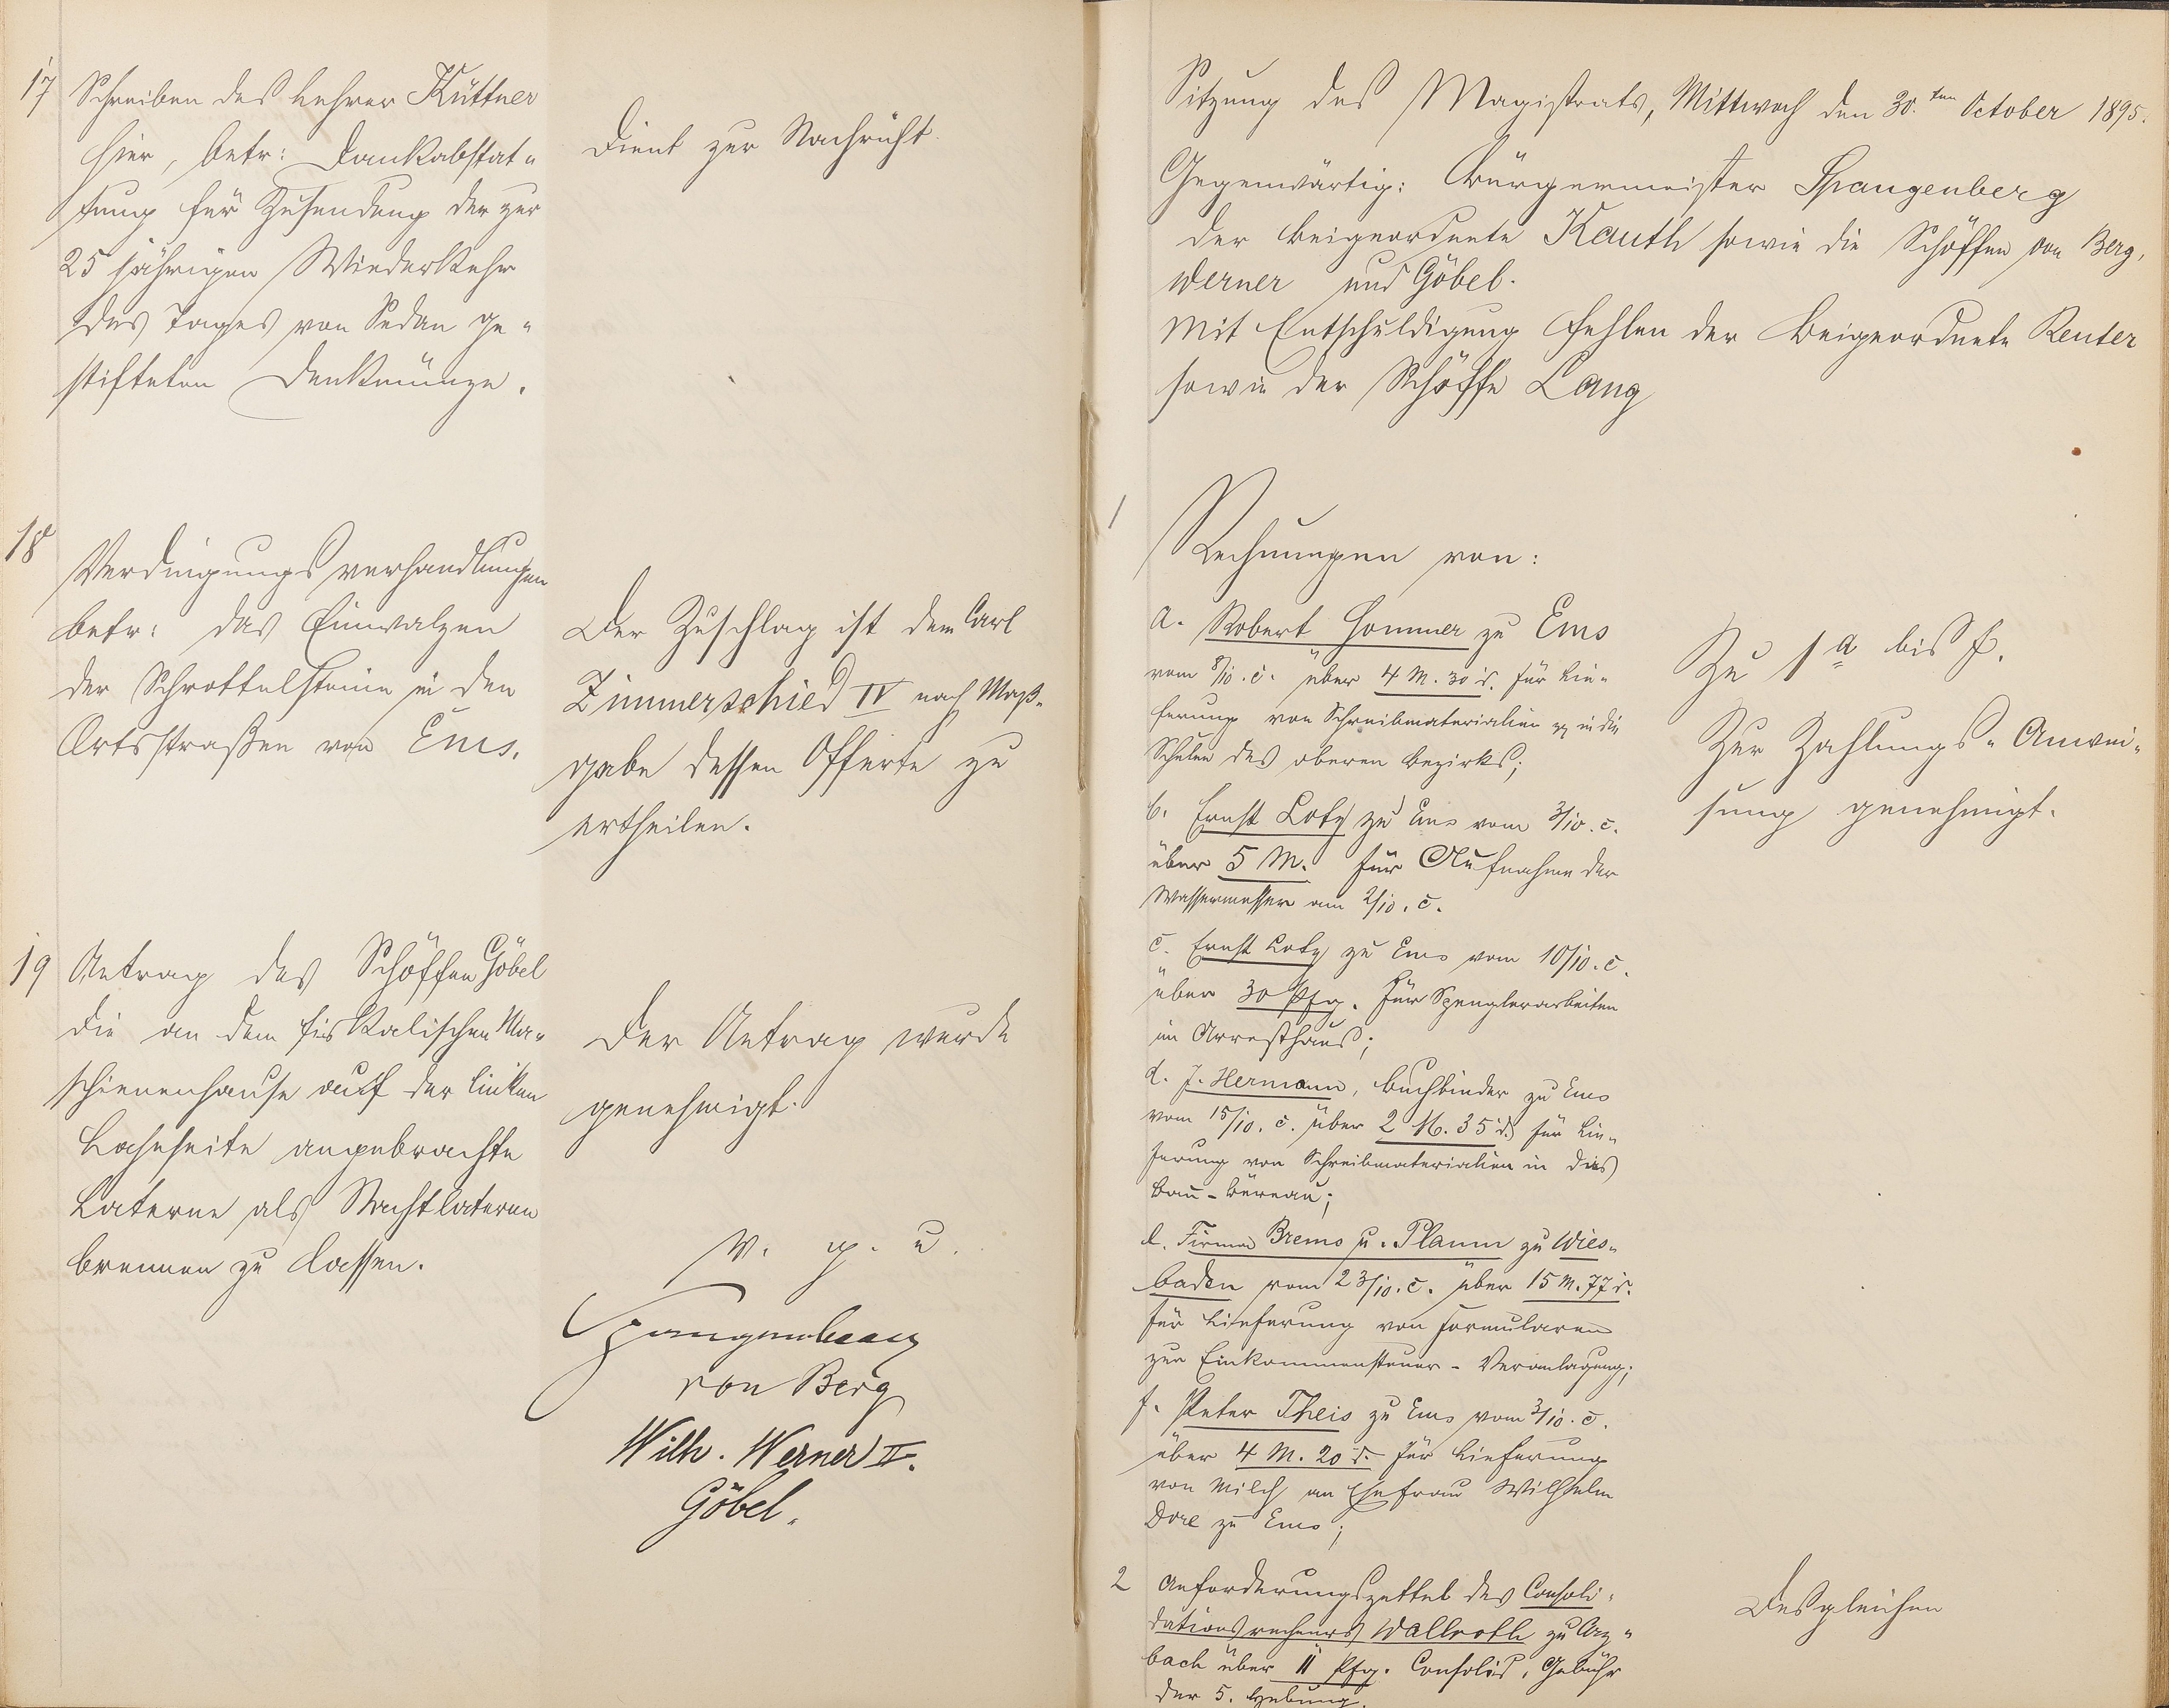 17 Schreiben des Lehrer Küttner
hier, betr: Dankabstat-
tung für Zusendung der zur
25 jährigen Wiederkehr
des Tages von Sedan ge-
stifteten Denkmünze.
Dient zur Nachricht.
18
Verdingungsverhandlungen
betr: das Einwalzen
der Schrottelsteine in den
Ortsstraßen von Ems.
Der Zuschlag ist dem Carl
Zimmerschied IV nach Maß-
gabe dessen Offerte zu
ertheilen.
19 Antrag des Schöffen Göbel
die an dem fiskalischen Ma-
schienenhause auf der linken
Lahnseite angebrachte
Laterne als Nachtlaterne
brennen zu lassen.
Der Antrag wurde
genehmigt.
v. g. u.
Spangenberg
von Berg
Wilh. Werner II.
Göbel.
Sitzung des Magistrats, Mittwoch den 30.ten October 1895.
Gegenwärtig: Bürgermeister Spangenberg
der Beigeordnete Kauth sowie die Schöffen von Berg,
Werner und Göbel.
Mit Entschuldigung fehlen der Beigeordnete Reuter
sowie der Schöffe Lang
1
Rechnungen von:
a. Robert Hommer zu Ems
vom 8/10. c. über 4 M. 30 d. für Lie-
ferung von Schreibmaterialien in die
Schulen des oberen Bezirks;
b. Ernst Loty zu Ems vom 3/10. c.
über 5 M. für Aufnahme der
Wassermesser am 2/10. c.
c. Ernst Loty zu Ems vom 10/10. c.
über 30 Pfg. für Spenglerarbeiten
im Arresthaus;
d. J. Hermann, Buchbinder zu Ems
vom 15/10. c. über 2 M. 35 d. für Lie-
ferung von Schreibmaterialien in das
Bau-Büreau;
e. Firma Brems u. Plaum zu Wies-
baden vom 23/10. c. über 15 M. 77 d.
für Lieferung von Formularen
zur Einkommensteuer-Veranlagung;
f. Peter Theis zu Ems vom 3/10. c.
über 4 M. 20 d. für Lieferung
von Milch an Ehefrau Wilhelm
Dorl zu Ems;
Zu 1 a bis f.
Zur Zahlungs-Anwei-
sung genehmigt.
2 Anforderungszettel des Consoli-
dationsrechners Wallroth zu Arz-
bach über 11 Pfg. Consolid. Gebühr
der 5. Hebung.
Desgleichen